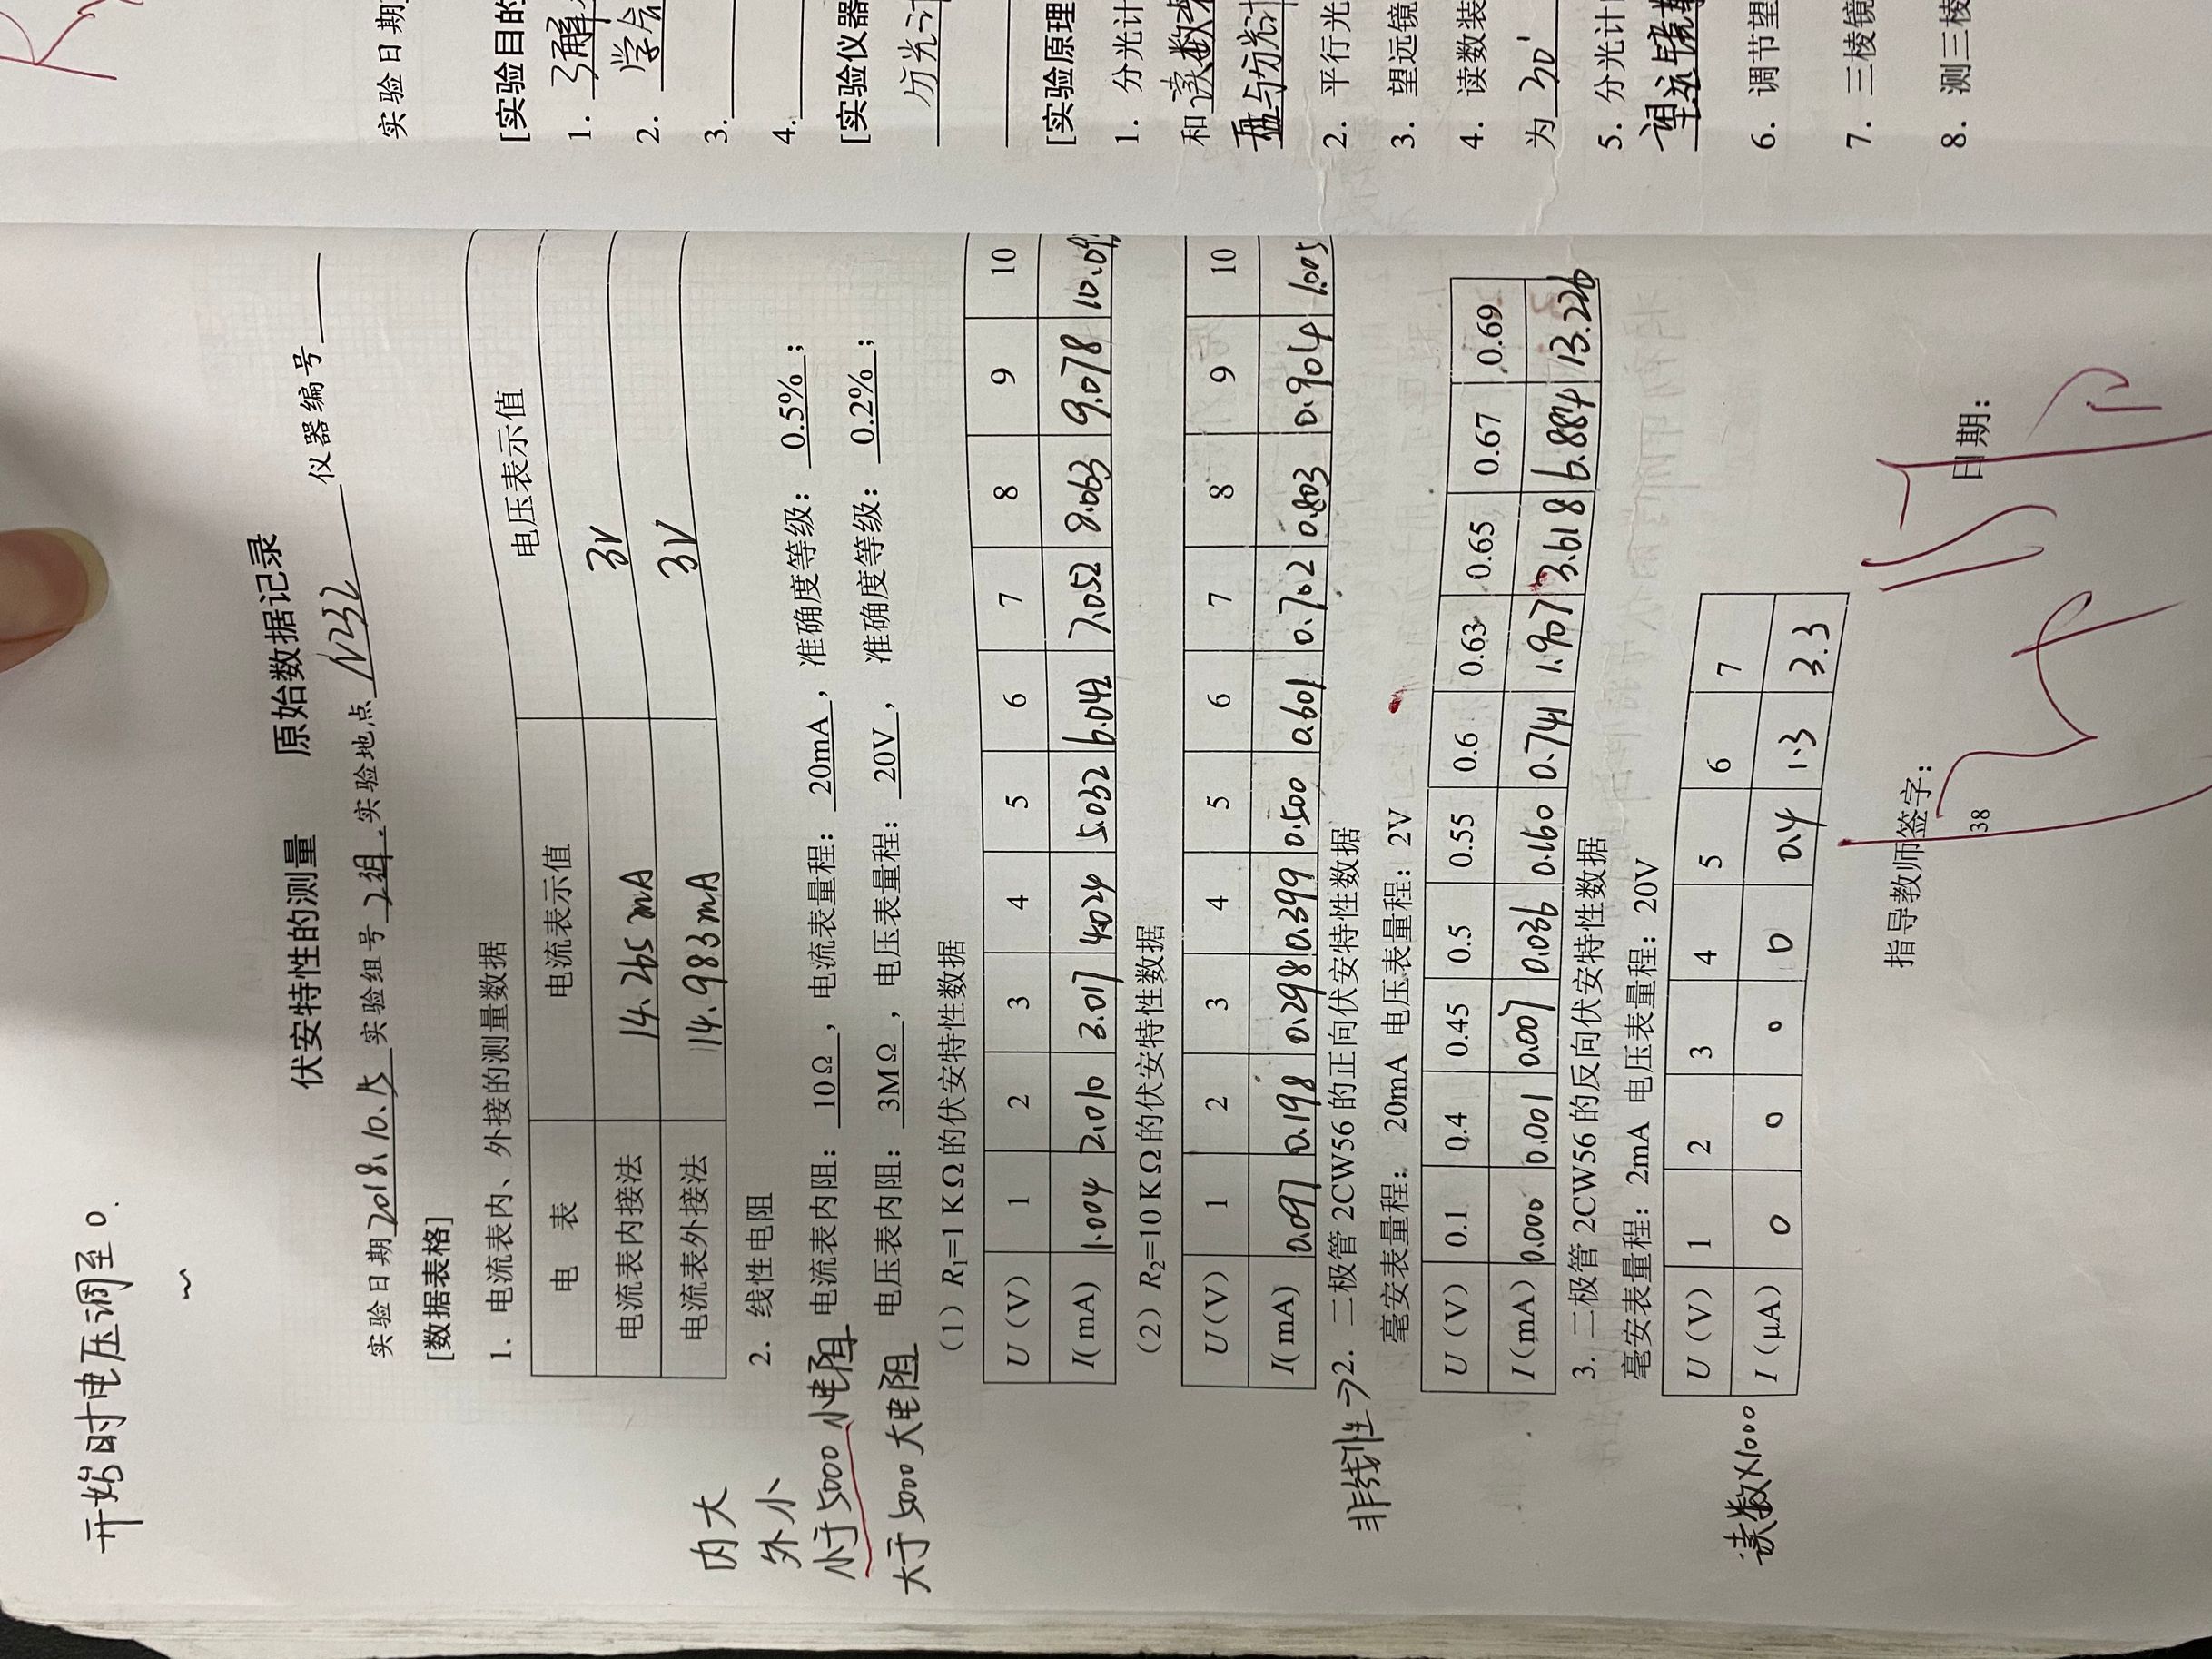 开始时电压调至0.
伏安特性的测量 原始数据记录
实验日期2018.10.15 实验组号 2组. 实验地点 N232 仪器编号
[数据表格]
1. 电流表内、外接的测量数据
电 表 电流表示值 电压表示值
电流表内接法 14.265mA 3V
电流表外接法 14.983mA 3V
内大
外小
小于5000 小电阻
大于5000 大电阻
2. 线性电阻
电流表内阻: 10Ω ,电流表量程: 20mA ,准确度等级: 0.5% ;
电压表内阻: 3MΩ ,电压表量程: 20V , 准确度等级: 0.2% ;
(1)R1=1 KΩ的伏安特性数据
U(V) 1 2 3 4 5 6 7 8 9 10
I( mA) 1.004 2.010 3.017 4.024 5.032 6.042 7.052 8.063 9.078
(2)R2=10 KΩ的伏安特性数据
U(V) 1 2 3 4 5 6 7 8 9 10
I( mA) 0.097 0.198 0.298 0.399 0.500 0.601 0.702 0.803 0.904 1.005
非线性→
2. 二极管 2CW56 的正向伏安特性数据
毫安表量程: 20mA 电压表量程:2V
U(V) 0.1 0.4 0.45 0.5 0.55 0.6 0.63 0.65 0.67 0.69
I(mA) 0.000 0.001 0.007 0.036 0.160 0.741 1.907 3.618 6.884 13.226
3. 二极管 2CW56 的反向伏安特性数据
毫安表量程:2mA 电压表量程:20V
U(V) 1 2 3 4 5 6 7
读数×1000
I(μA) 0 0 0 0 0.4 1.3 3.3
指导教师签字:
日期:
38
实验日期
[实验目的
1. 了解
2. 学会
3.
4.
[实验仪器
分光计
[实验原理
1. 分光计
和读数
盘与分光计
2. 平行光
3. 望远镜
4. 读数装
为 30'
5. 分光计
望远镜
6. 调节望
7. 三棱镜
8. 测三棱